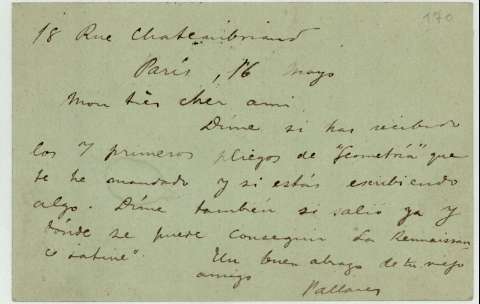 170
18 Rue Chateaubriand
París, 16 Mayo
Mon très cher ami
Díme si has recibido
los 7 primeros pliegos de "Geometría" que
te he mandado y si estás escribiendo
algo. Díme también si salió ya y
dónde se puede conseguir "La Rennaissan
ce latine". Un buen abrazo de tu viejo
amigo
Pallares